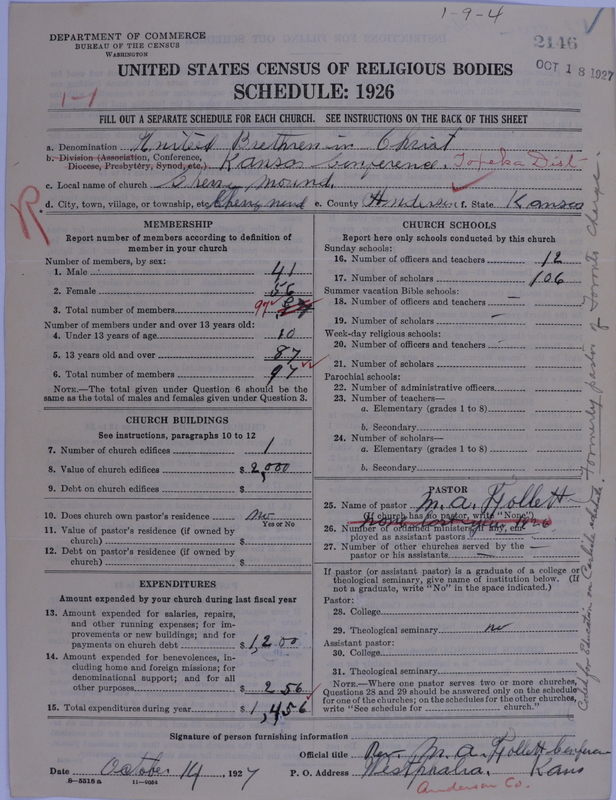 1-9-4
DEPARTMENT OF COMMERCE
BUREAU OF THE CENSUS
WASHINGTON
2146
OCT 18 1927
UNITED STATES CENSUS OF RELIGIOUS BODIES
SCHEDULE: 1926
1-1
FILL OUT A SEPARATE SCHEDULE FOR EACH CHURCH. SEE INSTRUCTIONS ON THE BACK OF THIS SHEET
a. Denomination United Brethren in Christ
b. Division (Association, Conference, Diocese, Presbytery, Synod, etc.) Kansas Conference. Topeka Dist
c. Local name of church Cherry Mound.
d. City, town, village, or township, etc. Cherry Mund e. County Anderson f. State Kansas
R
MEMBERSHIP
Report number of members according to definition of
member in your church
Number of members, by sex:
1. Male 41
2. Female 56
3. Total number of members 97
Number of members under and over 13 years old:
4. Under 13 years of age 10
5. 13 years old and over 87
6. Total number of members 97
NOTE.—The total given under Question 6 should be the
same as the total of males and females given under Question 3.
CHURCH BUILDINGS
See instructions, paragraphs 10 to 12
7. Number of church edifices 1
8. Value of church edifices $ 2,000
9. Debt on church edifices $
10. Does church own pastor's residence no
Yes or No
11. Value of pastor's residence (if owned by
church) $
12. Debt on pastor's residence (if owned by
church) $
EXPENDITURES
Amount expended by your church during last fiscal year
13. Amount expended for salaries, repairs,
and other running expenses; for im-
provements or new buildings; and for
payments on church debt $ 1,200
14. Amount expended for benevolences, in-
cluding home and foreign missions; for
denominational support; and for all
other purposes $ 256
15. Total expenditures during year $ 1,456
CHURCH SCHOOLS
Report here only schools conducted by this church
Sunday schools:
16. Number of officers and teachers 12
17. Number of scholars 106
Summer vacation Bible schools:
18. Number of officers and teachers —
19. Number of scholars —
Week-day religious schools:
20. Number of officers and teachers -
21. Number of scholars
Parochial schools:
22. Number of administrative officers
23. Number of teachers—
a. Elementary (grades 1 to 8)
b. Secondary
24. Number of scholars—
a. Elementary (grades 1 to 8)
b. Secondary
PASTOR
25. Name of pastor M. A. Follett
(If church has no pastor, write "None")
none last year
26. Number of ordained ministers, if any, em-
ployed as assistant pastors
27. Number of other churches served by the
pastor or his assistants —
If pastor (or assistant pastor) is a graduate of a college or
theological seminary, give name of institution below. (If
not a graduate, write "No" in the space indicated.)
Pastor:
28. College
29. Theological seminary no
Assistant pastor:
30. College
31. Theological seminary
NOTE.—Where one pastor serves two or more churches,
Questions 28 and 29 should be answered only on the schedule
for one of the churches; on the schedules for the other churches,
write "See schedule for church."
Formerly pastor of Toronto Charge.
Signature of person furnishing information
Official title Rev. M. A. Follett
Date October 14, 1927
P. O. Address Westphalia, Kans
Anderson Co.
8-5518a
11-9054